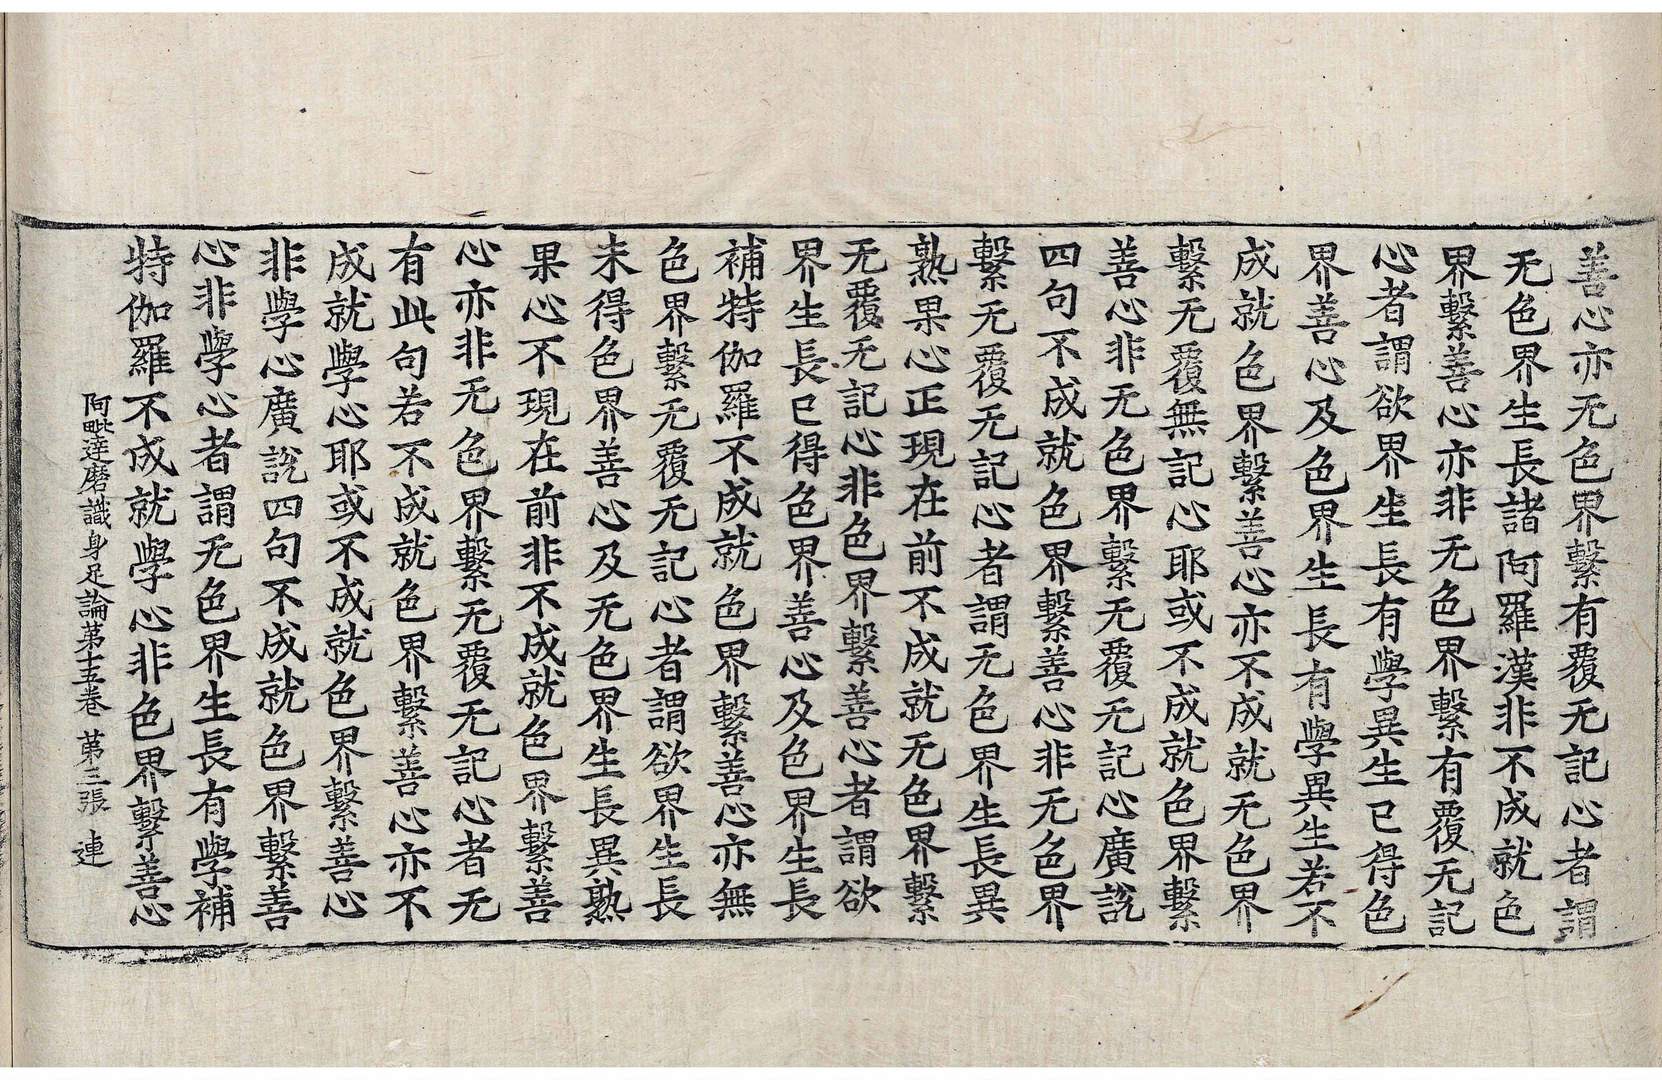 善心亦无色界繫有覆无記心者謂
无色界生長諸阿羅漢非不成就色
界繫善心亦非无色界繫有覆无記
心者謂欲界生長有學異生已得色
界善心及色界生長有學異生若不
成就色界繫善心亦不成就无色界
繫无覆無記心耶或不成就色界繫
善心非无色界繫无覆无記心廣說
四句不成就色界繫善心非无色界
繫无覆无記心者謂无色界生長異
熟果心正現在前不成就无色界繫
无覆无記心非色界繫善心者謂欲
界生長已得色界善心及色界生長
補特伽羅不成就色界繫善心亦無
色界繫无覆无記心者謂欲界生長
未得色界善心及无色界生長異熟
果心不現在前非不成就色界繫善
心亦非无色界繫无覆无記心者无
有此句若不成就色界繫善心亦不
成就學心耶或不成就色界繫善心
非學心廣說四句不成就色界繫善
心非學心者謂无色界生長有學補
特伽羅不成就學心非色界繫善心
阿毗達磨識身足論第十五卷 第三張 連